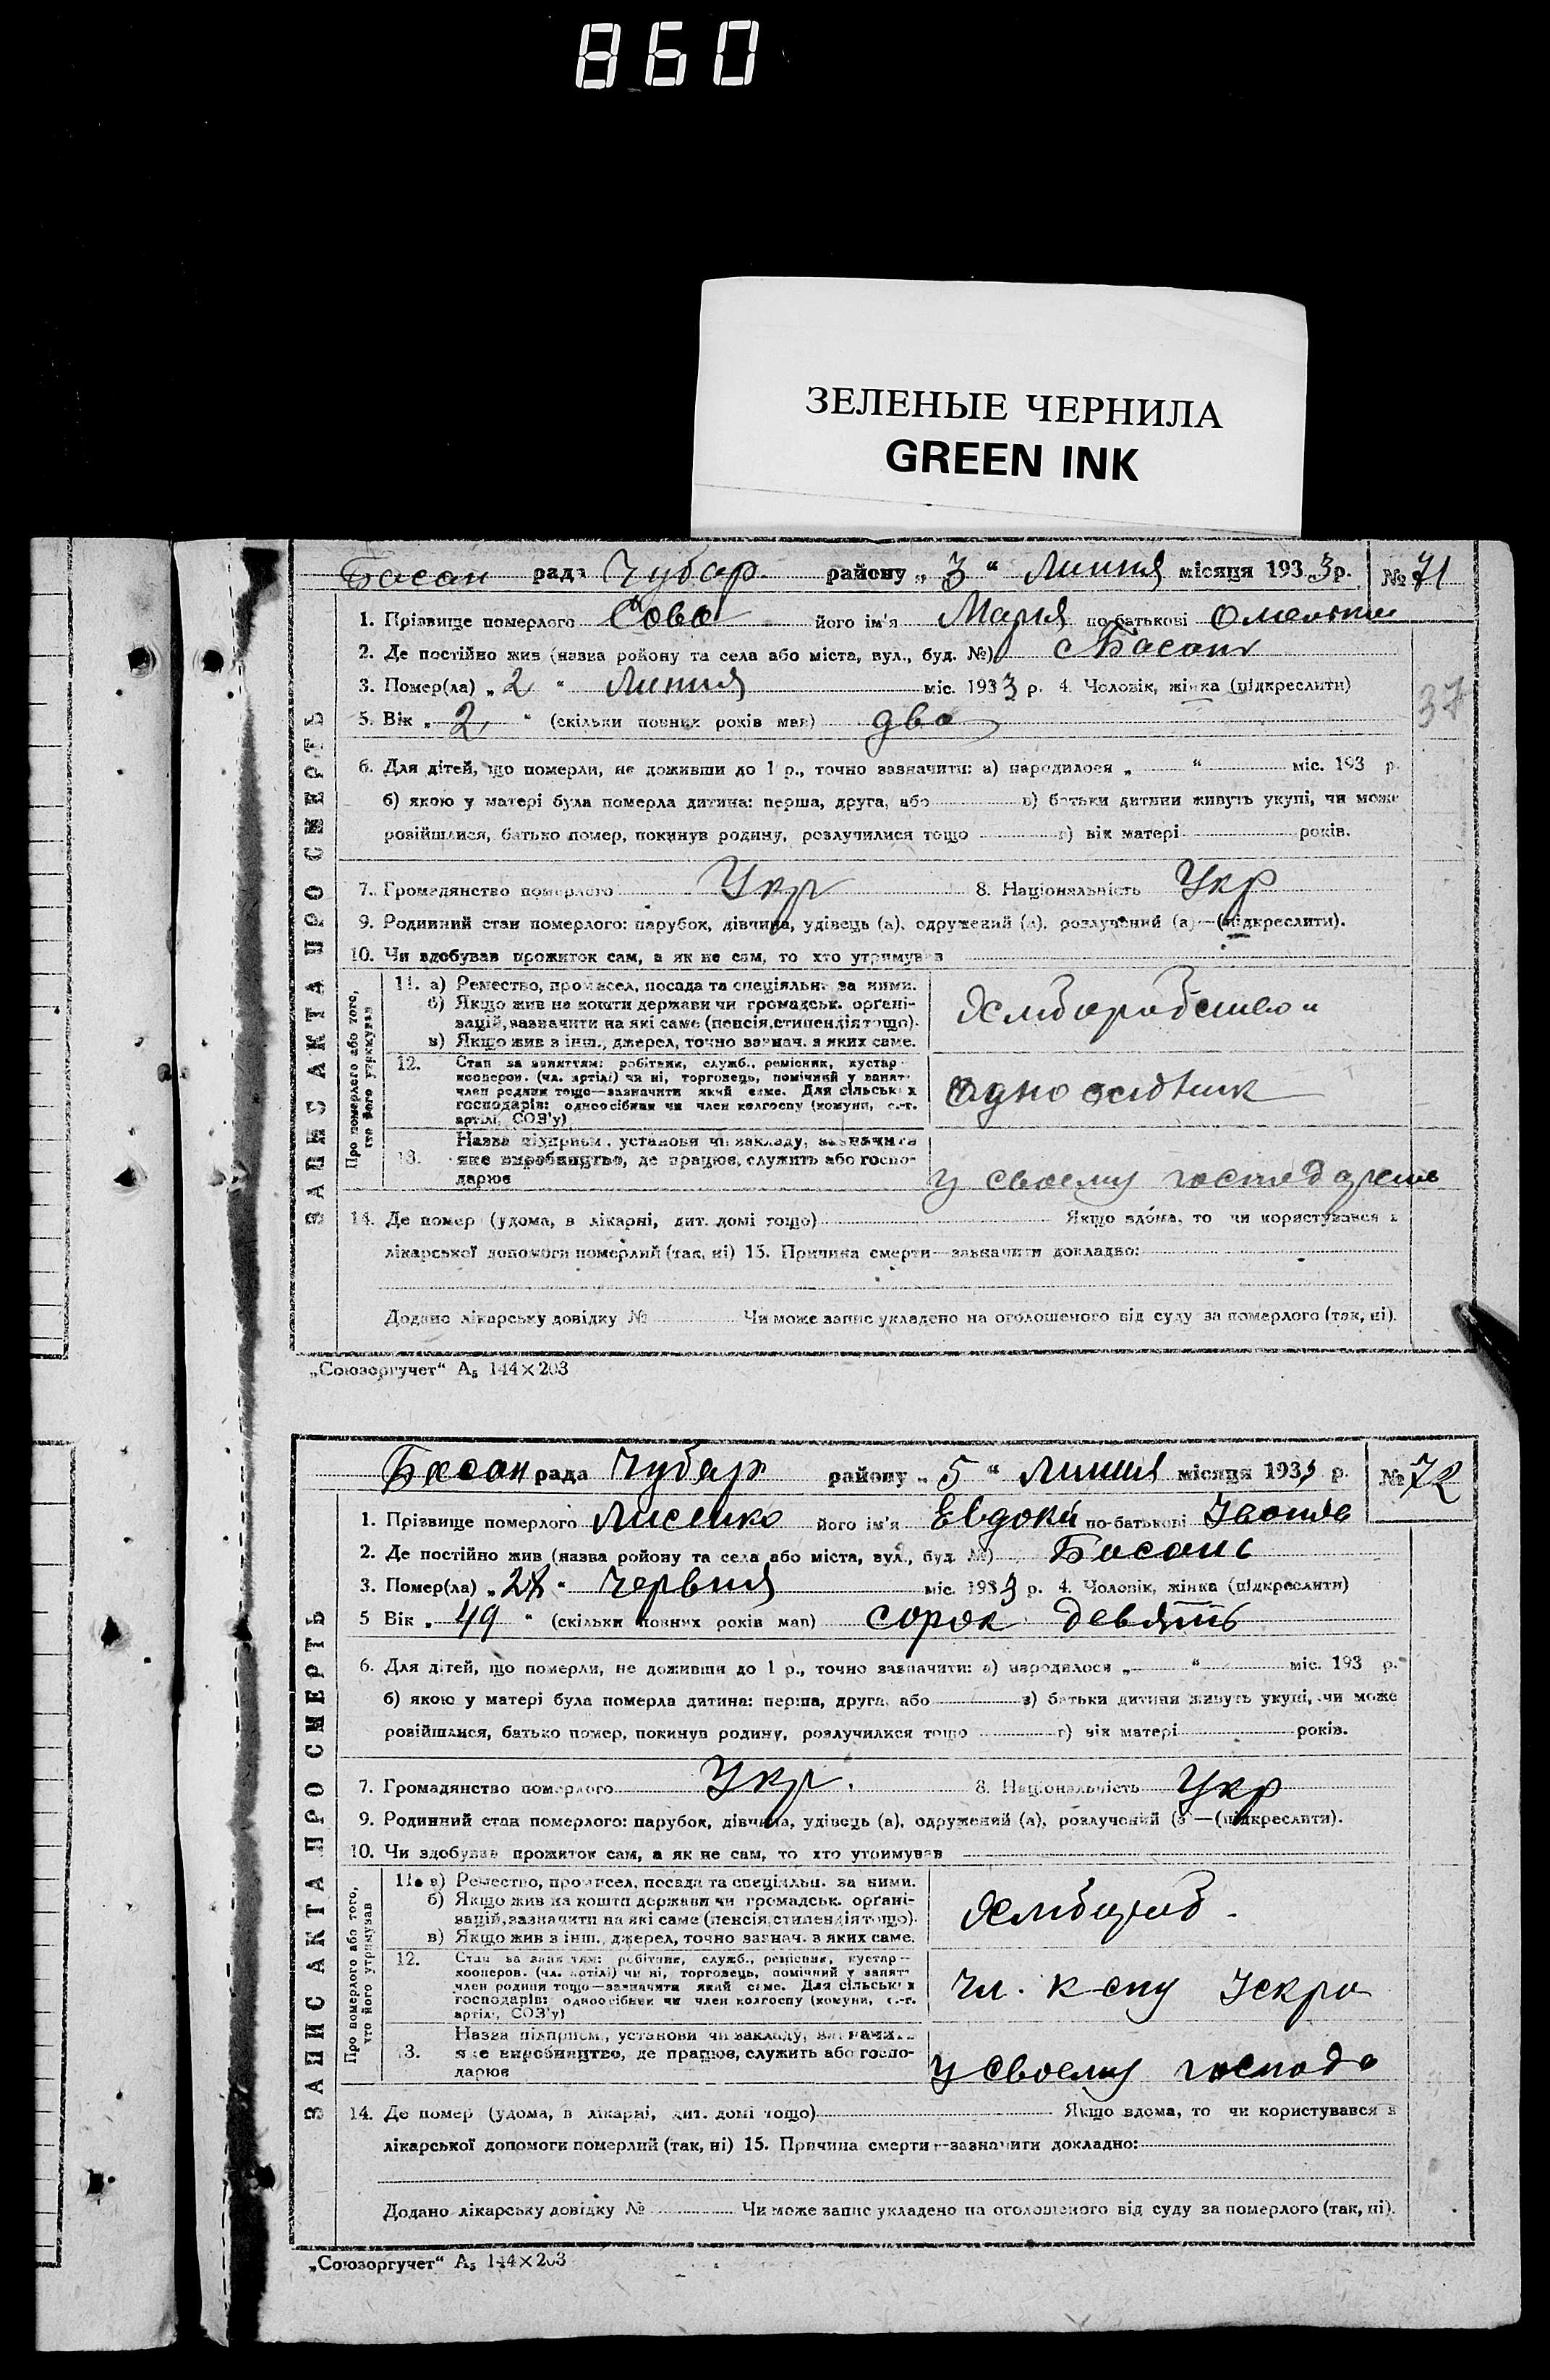 860
ЗЕЛЕНЫЕ ЧЕРНИЛА
GREEN INK
Басан рада Чубар. району „ 3 “ Липня місяця 193 3 р. № 71
ЗАПИС АКТА ПРО СМЕРТЬ
1. Прізвище померлого Сова його ім'я Марія по-батькові
2. Де постійно жив (назва району та села або міста, вул., буд. №) с Басань
3. Помер(ла) „ 2 “ Липня міс. 193 3 р. 4. Чоловік, жінка (підкреслити)
37
5. Вік „ 2 “ (скільки повних років мав) два
6. Для дітей, що померли, не доживши до 1 р., точно зазначити: а) народилося „ “ міс. 193 р.
б) якою у матері була померла дитина: перша, друга, або в) батьки дитини живуть укупі, чи може
розійшлися, батько помер, покинув родину, розлучилися тощо г) вік матері років.
7. Громадянство померлого Укр 8. Національність Укр
9. Родинний стан померлого: парубок, дівчина, удівець (а), одружений (а), розлучений (а)—(підкреслити).
10. Чи здобував прожиток сам, а як не сам, то хто утримував
Про померлого або того, хто його утримував
11. а) Ремество, промисел, посада та спеціяльн. за ними.
б) Якщо жив на кошти держави чи громадськ. органі-
зацій, зазначити на які саме (пенсія, стипендія тощо).
в) Якщо жив з інш., джерел, точно зазнач. з яких саме.
12. Стан за заняттям: робітник, служб., ремісник, кустар—
кооперов. (чл. артілі) чи ні, торговець, помічний у занят.
член родини тощо—зазначити який саме. Для сільськ х
господарів: одноосібник чи член колгоспу (комуни, с.-г.
артілі, СОЗ'у)
одноосібник
13. Назва підприєм., установи чи закладу, зазначити
яке виробництво, де працює, служить або госпо-
дарює
у своему
14. Де помер (удома, в лікарні, дит. домі тощо) Якщо вдома, то чи користувався з
лікарської допомоги померлий (так, ні) 15. Причина смерти—зазначити докладно:
Додано лікарську довідку № Чи може запис укладено на оголошеного від суду за померлого (так, ні).
„Союзоргучет“ А₅ 144×203
Басан рада Чубар району „ 5 “ Липня місяця 193 3 р. № 72
ЗАПИС АКТА ПРО СМЕРТЬ
1. Прізвище померлого Лисенко його ім'я Евдокі по-батькові
2. Де постійно жив (назва району та села або міста, вул., буд. №) Басань
3. Помер(ла) „ 28 “ Червня міс. 193 3 р. 4. Чоловік, жінка (підкреслити)
5 Вік „ 49 “ (скільки повних років мав) сорок девять
6. Для дітей, що померли, не доживши до 1 р., точно зазначити: а) народилося „ “ міс. 193 р.
б) якою у матері була померла дитина: перша, друга, або в) батьки дитини живуть укупі, чи може
розійшлися, батько помер, покинув родину, розлучилися тощо г) вік матері років.
7. Громадянство померлого Укр. 8. Національність Укр
9. Родинний стан померлого: парубок, дівчина, удівець (а), одружений (а), розлучений (а)—(підкреслити).
10. Чи здобував прожиток сам, а як не сам, то хто утримував
Про померлого або того, хто його утримував
11. а) Ремество, промисел, посада та спеціяльн. за ними.
б) Якщо жив на кошти держави чи громадськ. органі-
зацій, зазначити на які саме (пенсія, стипендія тощо).
в) Якщо жив з інш., джерел, точно зазнач. з яких саме.
12. Стан за заняттям: робітник, служб., ремісник, кустар—
кооперов. (чл. артілі) чи ні, торговець, помічний у занят.
член родини тощо—зазначити який саме. Для сільськ х
господарів: одноосібник чи член колгоспу (комуни, с.-г.
артілі, СОЗ'у)
Чл. к-спу Искра
13. Назва підприєм., установи чи закладу, зазначити
яке виробництво, де працює, служить або госпо-
дарює
у своему господа
14. Де помер (удома, в лікарні, дит. домі тощо) Якщо вдома, то чи користувався з
лікарської допомоги померлий (так, ні) 15. Причина смерти—зазначити докладно:
Додано лікарську довідку № Чи може запис укладено на оголошеного від суду за померлого (так, ні).
„Союзоргучет“ А₅ 144×203